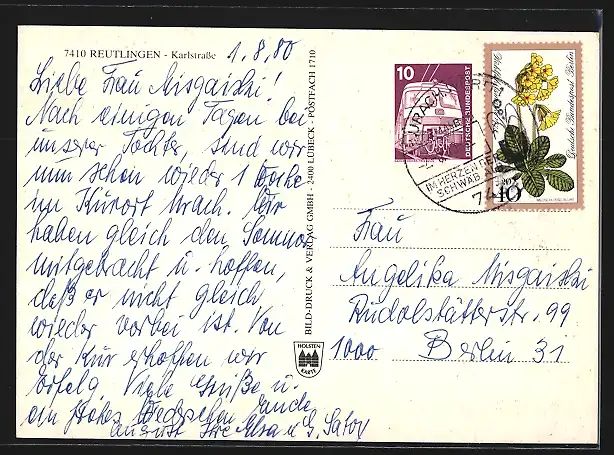 7410 REUTLINGEN - Karlstraße
1.8.80
Liebe Frau Misgaiski!
Nach einigen Tagen bei
unserer Tochter, sind wir
nun schon wieder 1 Woche
im Kurort Urach. Wir
haben gleich den Sommer
mitgebracht u. hoffen,
daß er nicht gleich
wieder vorbei ist. Von
der Kur erhoffen wir
Erfolg. Viele Grüße u.
ein frohes
Ihre Elsa u. G.
BILD-DRUCK & VERLAG GMBH · 2400 LÜBECK · POSTFACH 1710
HOLSTEN
KARTE
10
DEUTSCHE BUNDESPOST
Deutsche Bundespost Berlin
URACH
IM HERZEN DER
SCHWÄB
74
Frau
Angelika Misgaiski
Rudolstätterstr. 99
1000 Berlin 31